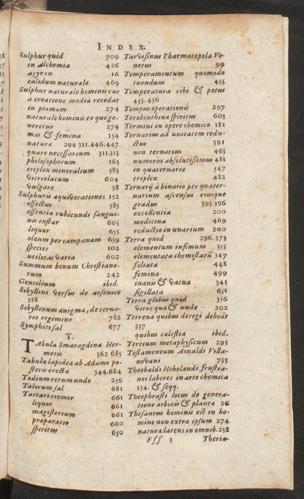 INDEX.
Sulphur quid 700
in Alchemia 426
ἄζυγον 16
calidum naturale 469
Sulphur naturale hominis cur
a creatione media recedat
in primam 274
naturale hominis ex quo generetur 274
mas & femina 154
natura 294 311.446.447
quare necessarium 311.312
philosophorum 163
triplex mineralium 583
Vitriolatum 604
Vulgare 38
Sulphuris aquæ vocationes 152
effectus 585
essentia rubicunda sanguinis instar 605
liquor 655
oleum per campanam 659
species 102
utilitas varia 602
Summum bonum Christianorum 242
Gentilium ibid.
Sybillini Versus de arsenico
558
Sybyllenum ænigma, de ternario regimine 782
Symphiti sal 677
T.
Tabula Smaragdina Hermetis 362 685
Tabula lapidea ab Adami posteris erecta 544.684
Tædium rerum unde 259
Talorum sal 681
Tartari cremor 661
liquor 661
magisterium 661
præparatio 660
spiritus 650
Tarvisinus Pharmacopola Venetus 99
Temperamentum quomodo
tuendum 455
Temperatura cibi & potus
455.456
Tempus operationis 297
Terebinthina spiritus 603
Terminus in opere chemico 181
Ternarius ad unitatem reductus 391
non ternarius 463
numerus absolutissimus 481
in quaternario 547
triplex 482
Ternarij à binario per quaternarium ascensus eiusque
gradus 395.396
excellentia 200
medicina 469
reductio in unarium 200
Terra quid 296.373
elementum infimum 355
elementata chemistarũ 347
foliata 448
femina 499
inanis & vacua 341
stellata 638
Terra globus quid 556
Vires quæ & unde 202
Terrena quibus detegi debeãt
337
quibus cælestia ibid.
Tertium metaphysicum 295
Testamentum Arnaldi Villanovani 755
Theobaldi Hohelandi frustranei labores in arte chemica
174. & seqq.
Theophrasti locus de generatione arboris & plantæ 26
Thesaurus hominis est in homine non extra ipsum 274
natura latens in omnib. 238
Fff 3
Theria-